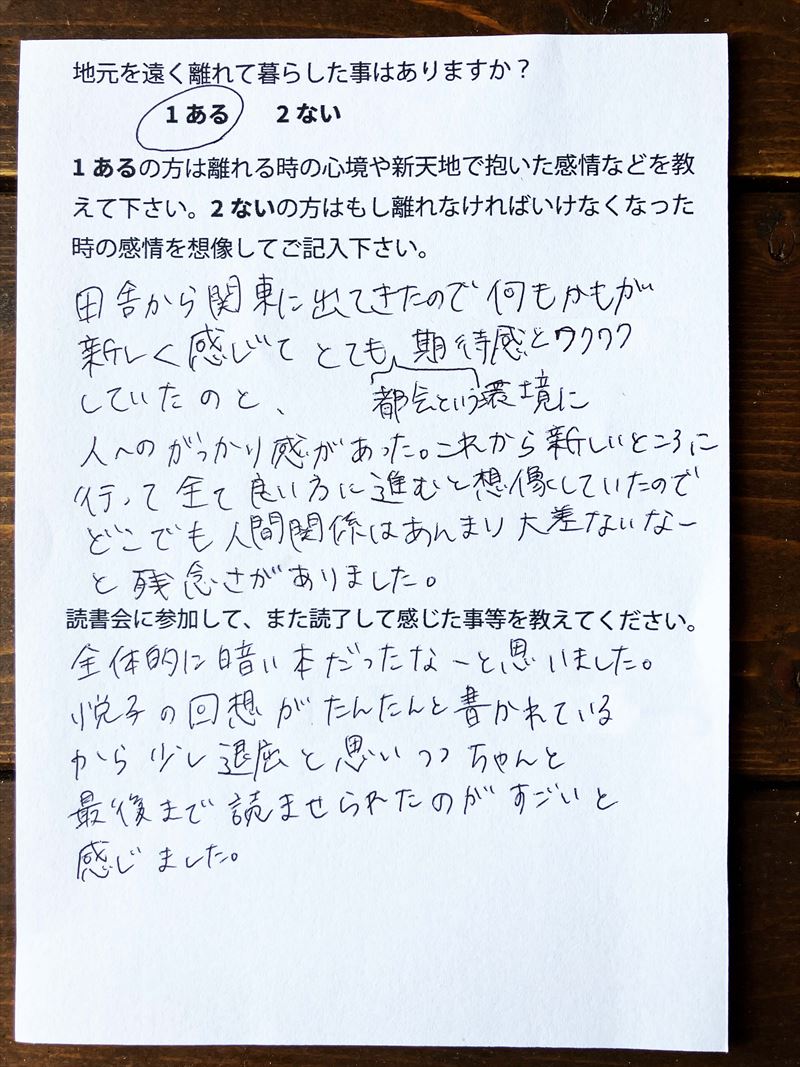 地元を遠く離れて暮らした事はありますか？
1 ある　2 ない
1 あるの方は離れる時の心境や新天地で抱いた感情などを教
えて下さい。2 ないの方はもし離れなければいけなくなった
時の感情を想像してご記入下さい。
田舎から関東に出てきたので何もかもが
新しく感じてとても期待感とワクワク
していたのと、
都会という環境に
人へのがっかり感があった。これから新しいところに
行って全て良い方に進むと想像していたので
どこでも人間関係はあんまり大差ないなー
と残念さがありました。
読書会に参加して、また読了して感じた事等を教えてください。
全体的に暗い本だったなーと思いました。
悦子の回想がたんたんと書かれている
から少し退屈と思いつつちゃんと
最後まで読ませられたのがすごいと
感じました。